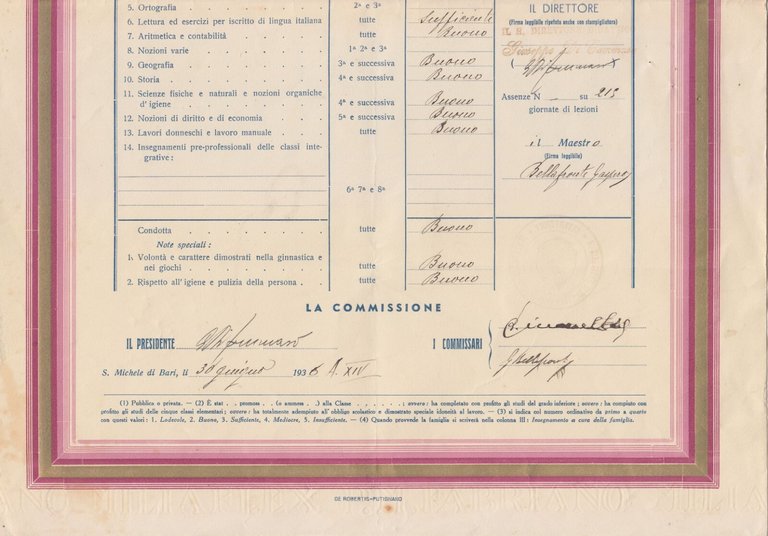 5. Ortografia . . . . . . . . . 2ª e 3ª
6. Lettura ed esercizi per iscritto di lingua italiana tutte Sufficiente
7. Aritmetica e contabilità . . . . . . tutte Buono
8. Nozioni varie . . . . . . . . 1ª 2ª e 3ª
9. Geografia . . . . . . . . . 3ª e successiva Buono
10. Storia . . . . . . . . . . 4ª e successiva Buono
11. Scienze fisiche e naturali e nozioni organiche
d'igiene . . . . . . . . . 4ª e successiva Buono
12. Nozioni di diritto e di economia . . . . 5ª e successiva Buono
13. Lavori donneschi e lavoro manuale . . . . tutte Buono
14. Insegnamenti pre-professionali delle classi inte-
grative :
6ª 7ª e 8ª
Condotta . . . . . . tutte Buono
Note speciali :
1. Volontà e carattere dimostrati nella ginnastica e
nei giochi . . . . . . . . . tutte Buono
2. Rispetto all'igiene e pulizia della persona . . tutte Buono
IL DIRETTORE
(Firma leggibile ripetuta anche con stampigliatura)
IL R.
Giuseppe
Assenze N. _ su 215
giornate di lezioni
il Maestro
(firma leggibile)
LA COMMISSIONE
IL PRESIDENTE
I COMMISSARI
S. Michele di Bari, li 30 giugno 1936 A. XIV
(1) Pubblica o privata. — (2) È stat . . promoss . . (o ammess . .) alla Classe . . . . . . ; ovvero : ha completato con profitto gli studi del grado inferiore ; ovvero : ha compiuto con
profitto gli studi delle cinque classi elementari ; ovvero : ha totalmente adempiuto all'obbligo scolastico e dimostrato speciale idoneità al lavoro. — (3) si indica col numero ordinativo da primo a quarto
con questi valori : 1. Lodevole, 2. Buono, 3. Sufficiente, 4. Mediocre, 5. Insufficiente. — (4) Quando provvede la famiglia si scriverà nella colonna III : Insegnamento a cura della famiglia.
DE ROBERTIS-PUTIGNANO